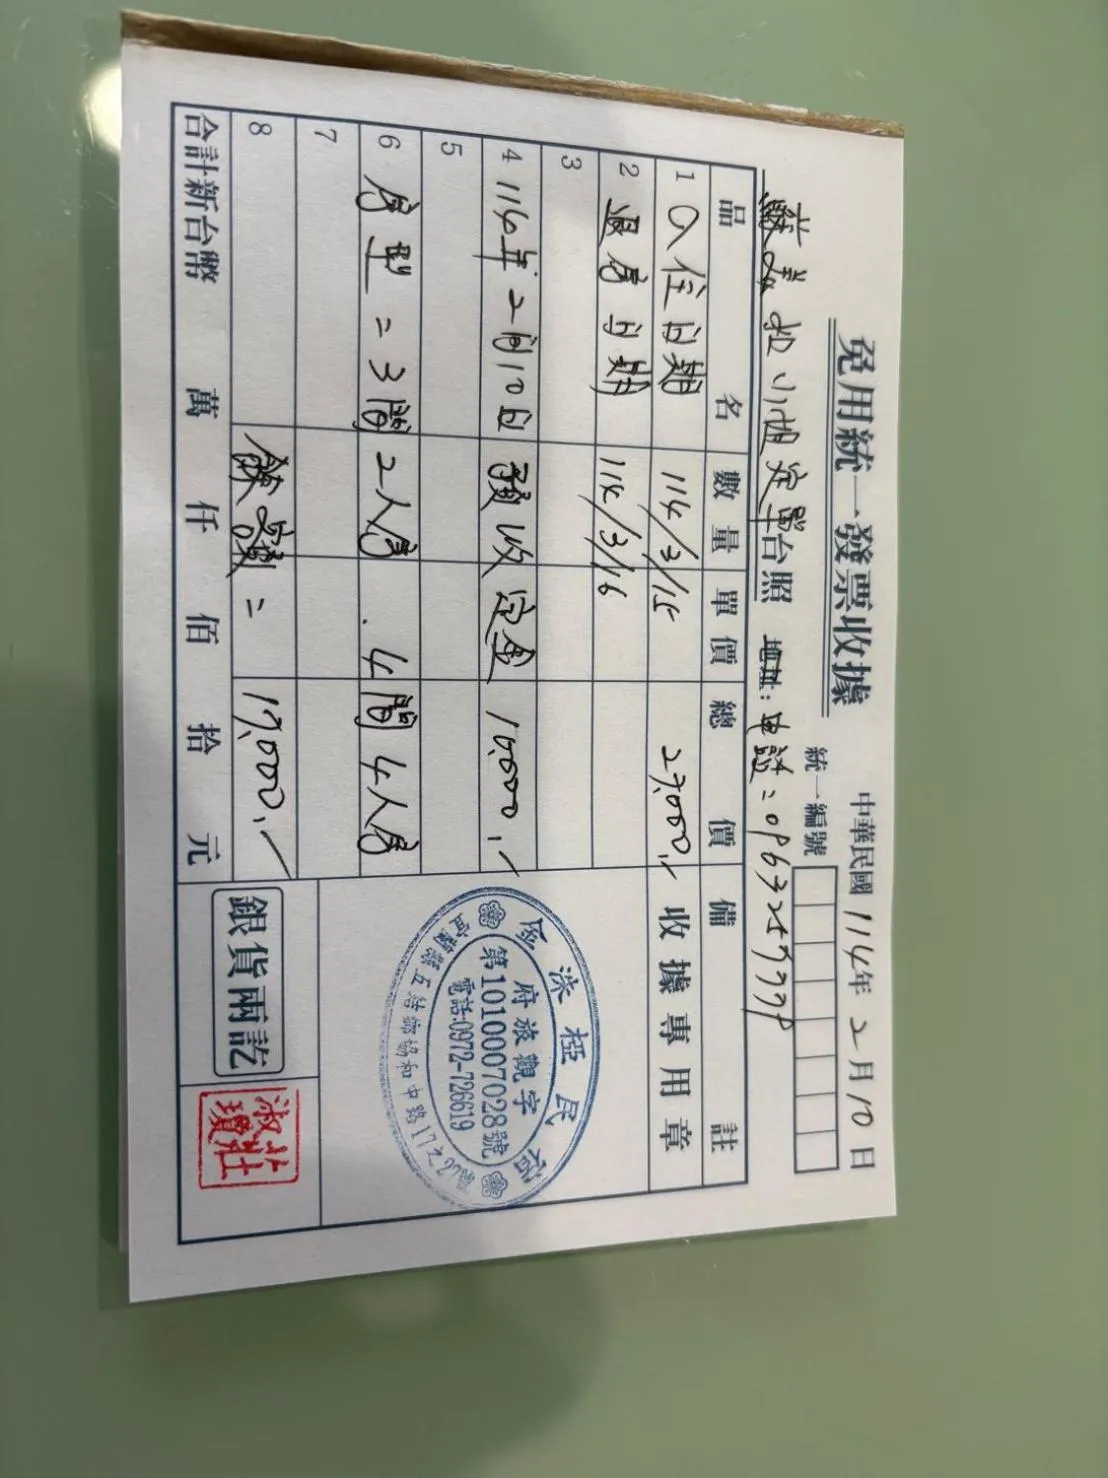 免用統一發票收據
中華民國114年2月10日
統一編號
小姐 定單 台照 地址: 電話:
品名 數量 單價 總價 備註
1 入住日期 114/3/15 27,000.- 收據專用章
2 退房日期 114/3/16
3
4 114年2月10日 預收定金 10,000.-
5
6 房型=3間2人房.4間4人房
7
8 餘額=17,000.-
合計新台幣 萬 仟 佰 拾 元
銀貨兩訖
民宿
府旅觀字
第1010007028號
電話:0972-726619
宜蘭縣五結鄉協和中路17之2號